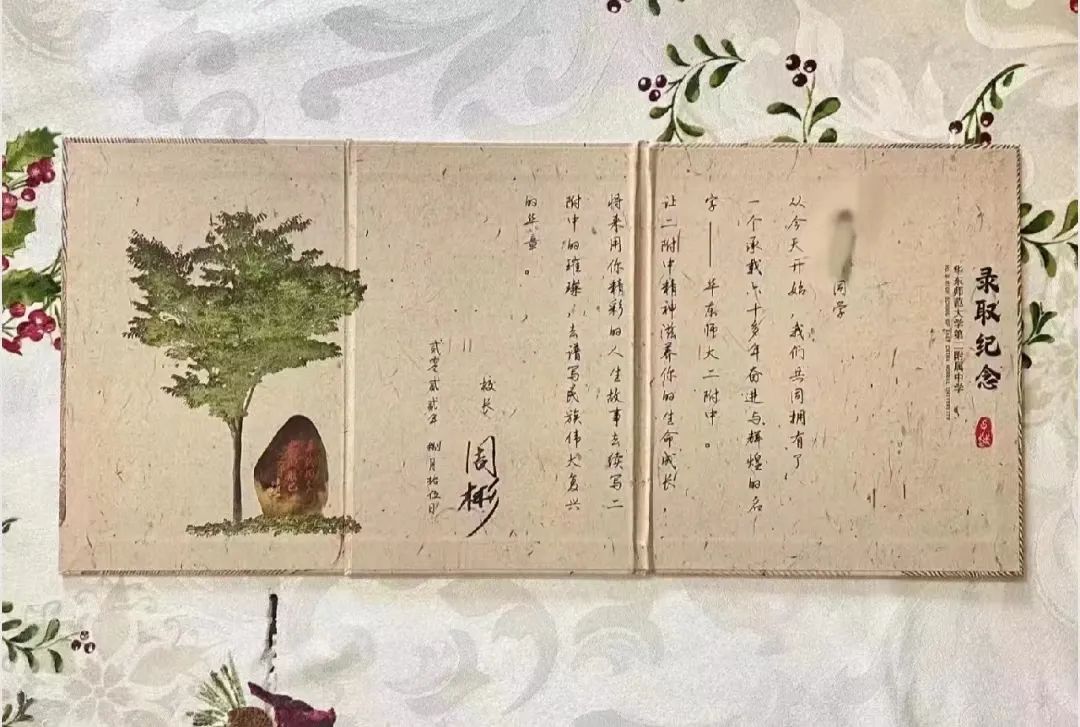 录取纪念
华东师范大学第二附属中学
同学
从今天开始，我们共同拥有了
一个承载六十多年奋进与辉煌的名
字——华东师大二附中。
让二附中精神滋养你的生命成长，
将来用你精彩的人生故事去续写二
附中的璀璨，去谱写民族伟大复兴
的华章。
校长
周彬
贰零贰贰年 捌月拾伍日